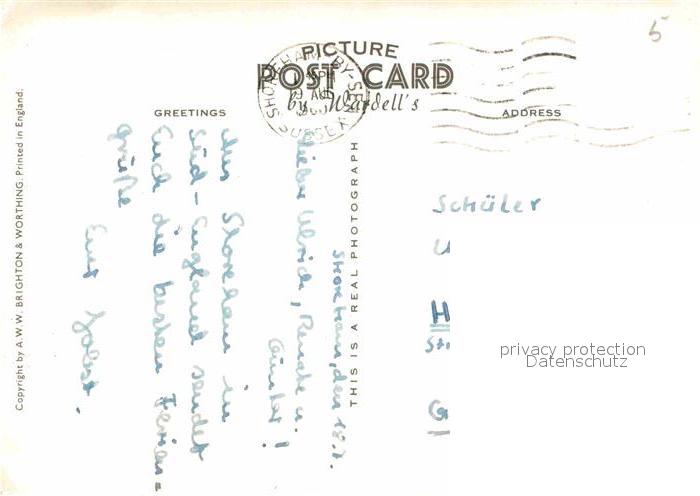 5
PICTURE
POST CARD
by Wardell's
SHOREHAM-BY-SEA
SUSSEX
GREETINGS
ADDRESS
Copyright by A.W.W. BRIGHTON & WORTHING. Printed in England.
THIS IS A REAL PHOTOGRAPH
Shoreham, den 18.7.
Lieber Ulrich, Renate u.
Günter!
Aus Shoreham in
Süd-England sendet
Euch die besten Ferien-
grüße
Euer
Schüler
U
H
Str
G
privacy protection
Datenschutz